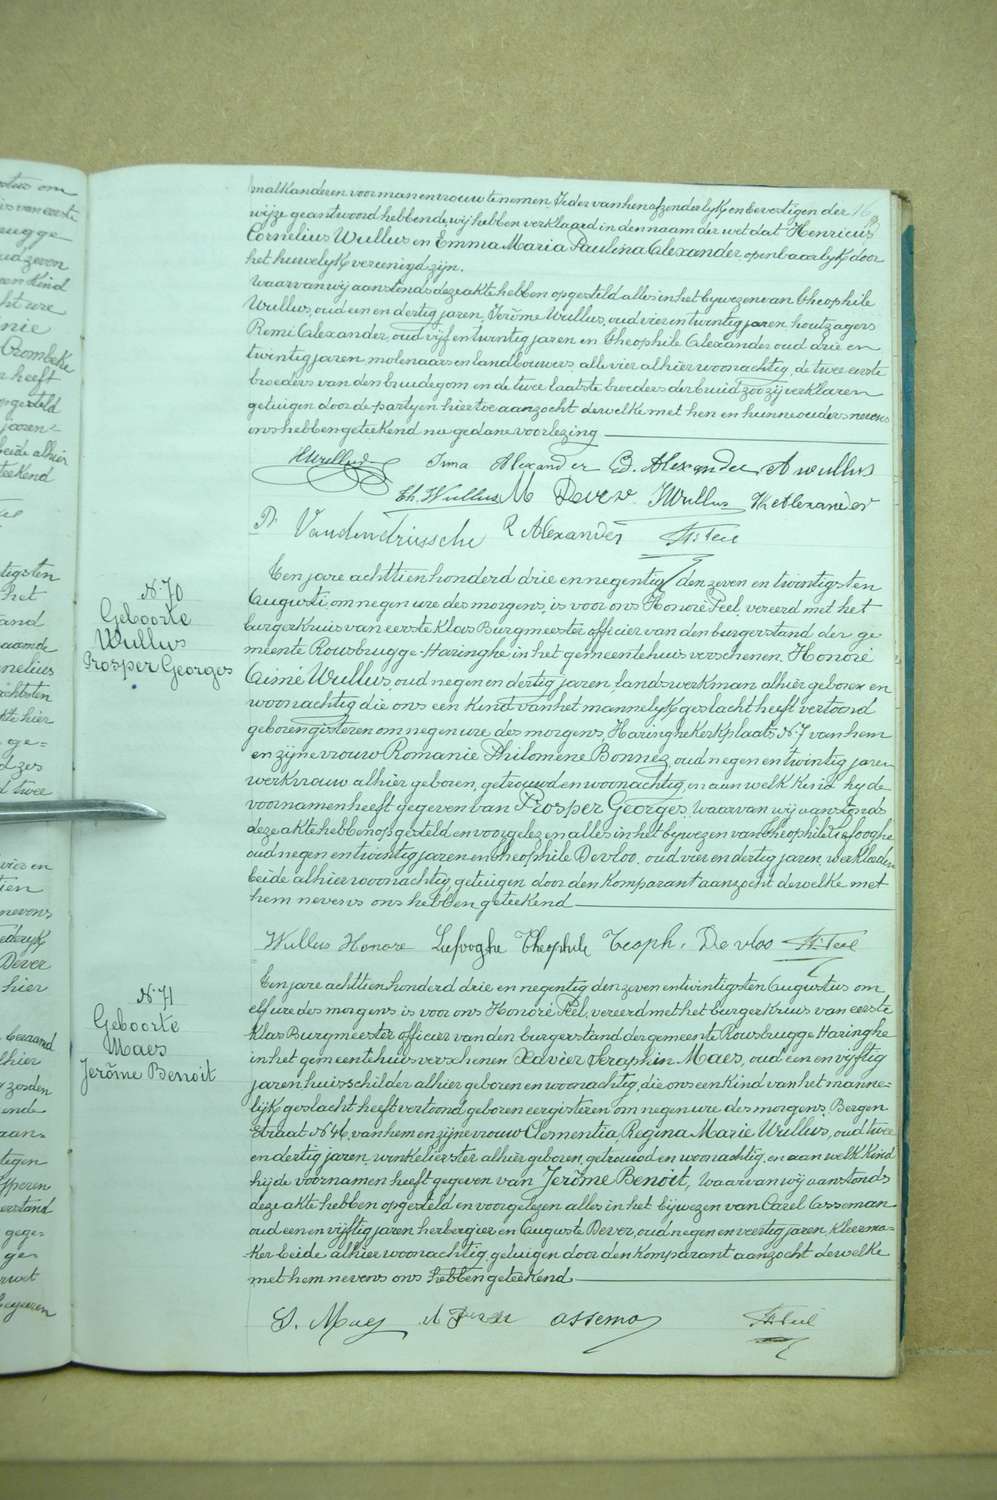 malkanderen voor man en vrouw te nemen Ieder van hen afzonderlijk en bevestigen der 16
wijze geantwoord hebbende wij hebben verklaard in den naam der wet dat Henricus
Cornelius Wullus en Emma Maria Paulina Alexander openbaarlijk door
het huwelijk vereenigd zijn.
Waarvan wij aanstonds deze akte hebben opgesteld alles in het bijwezen van Theophile
Wullus, oud een en dertig jaren, Jerôme Wullus, oud vier en twintig jaren houtzagers
Remi Alexander, oud vijf en twintig jaren en Theophile Alexander oud drie en
twintig jaren molenaars en landbouwers, alle vier alhier woonachtig, de twee eerste
broeders van den bruidegom en de twee laatste broeders der bruid zoo zij verklaren
getuigen door de partijen hier toe aanzocht dewelke met hen en hunne ouders nevens
ons hebben geteekend na gedane voorlezing
HWullus Irma Alexander B. Alexander A wullus
Th. Wullus M Dever JWullus Th Alexander
P. Vandendriessche R Alexander H. Peel
N. 70
Geboorte
Wullus
Prosper Georges
Ten jare achttien honderd drie en negentig den zeven en twintigsten
Augusti, om negen ure des morgens, is voor ons Honoré Peel, vereerd met het
burgerkruis van eerste klas Burgmeester officier van den burgerstand der ge
meente Rousbrugge-Haringhe in het gemeentehuis verschenen, Honoré
Aimé Wullus, oud negen en dertig jaren, landswerkman alhier geboren en
woonachtig die ons een kind van het mannelijk geslacht heeft vertoond
geboren gisteren om negen ure des morgens, Haringhe Kerkplaats N. 7 van hem
en zijne vrouw Romanie Philomene Bonnez, oud negen en twintig jaren
werkvrouw alhier geboren, getrouwd en woonachtig, en aan welk kind hy de
voornamen heeft gegeven van Prosper Georges, waarvan wij aanstonds
deze akte hebben opgesteld en voorgelezen alles in het bijwezen van Theophile Lefooghe
oud negen en twintig jaren en Theophile Devloo, oud vier en dertig jaren, werklieden
beide alhier woonachtig, getuigen door den komparant aanzocht dewelke met
hem nevens ons hebben geteekend
Wullus Honore Lefooghe Theophile Teoph. De vloo H. Peel
N. 71
Geboorte
Maes
Jerôme Benoit
Ten jare achttien honderd drie en negentig den zeven en twintigsten Augustus om
elf ure des morgens is voor ons Honoré Peel, vereerd met het burgerkruis van eerste
klas Burgmeester officier van den burgerstand der gemeente Rousbrugge Haringhe
in het gemeentehuis verschenen Xavier Séraphin Maes, oud een en vijftig
jaren, huisschilder alhier geboren en woonachtig, die ons een kind van het manne=
lijk geslacht heeft vertoond geboren eergisteren om negen ure des morgens, Bergen
straat N. 46, van hem en zijne vrouw Clementia Regina Marie Wullus, oud twee
en dertig jaren, winkelierster alhier geboren, getrouwd en woonachtig, en aan welk kind
hij de voornamen heeft gegeven van Jerôme Benoit, waarvan wij aanstonds
deze akte hebben opgesteld en voorgelezen alles in het bijwezen van Carel Asseman
oud een en vijftig jaren herbergier en Auguste Dever, oud negen en veertig jaren, kleerma=
ker beide alhier woonachtig, getuigen door den komparant aanzocht dewelke
met hem nevens ons hebben geteekend
S. Maes A Dever assema H. Peel